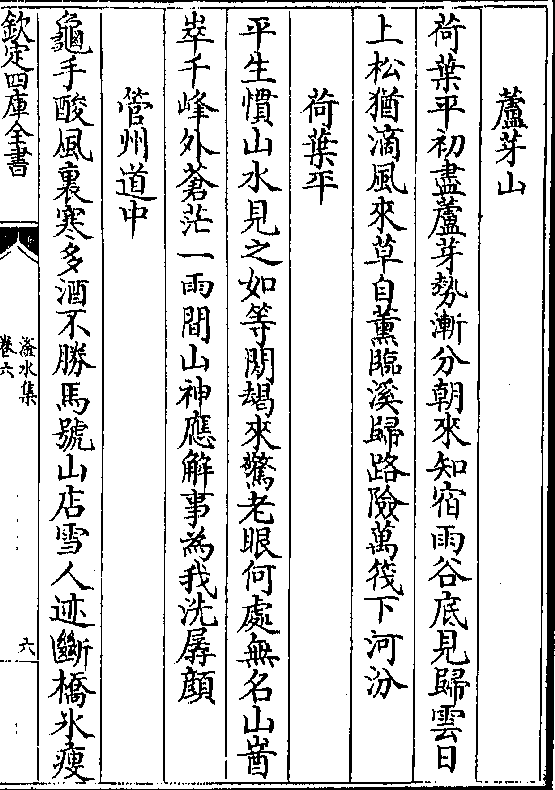 蘆芽山
荷葉平初盡蘆芽勢漸分朝來知宿雨谷底見歸雲日
上松猶滴風來草自薰臨溪歸路險萬筏下河汾
荷葉平
平生慣山水見之如等閒朅來驚老眼何處無名山崷
崒千峰外蒼茫一雨間山神應解事為我洗孱顔
管州道中
龜手酸風裏寒多酒不勝馬號山店雪人迹斷橋氷瘦
欽定四庫全書
滏水集
卷六
六